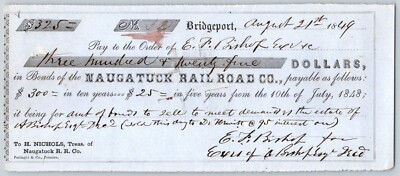 $325= No. Bridgeport, August 21st 1849
Pay to the Order of E. F. Bishop Exr &c
three hundred & twenty five DOLLARS,
in Bonds of the NAUGATUCK RAIL ROAD CO., payable as follows:
$300= in ten years $25= in five years from the 10th of July, 1848:
it being for amt of bonds to sell to meet demands vs the estate of
A Bishop Esqr Decd (sold this day to @ 95 interest on)
E. F. Bishop for
Exrs of A Bishop Esqr Decd
To H. NICHOLS, Treas. of
Naugatuck R. R. Co.